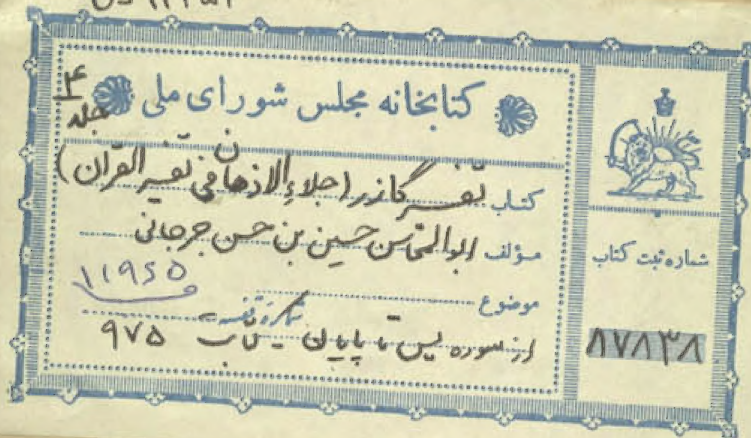 کتابخانه مجلس شورای ملی
جلد ۴
کتاب تفسیر گازر (جلاء الاذهان فی تفسیر القران)
مؤلف ابوالمحاسن حسین بن حسن جرجانی
موضوع
۱۱۹۶۵
از سوره یس تا پایان کتاب ۹۷۵
شماره ثبت کتاب
۸۷۸۳۸